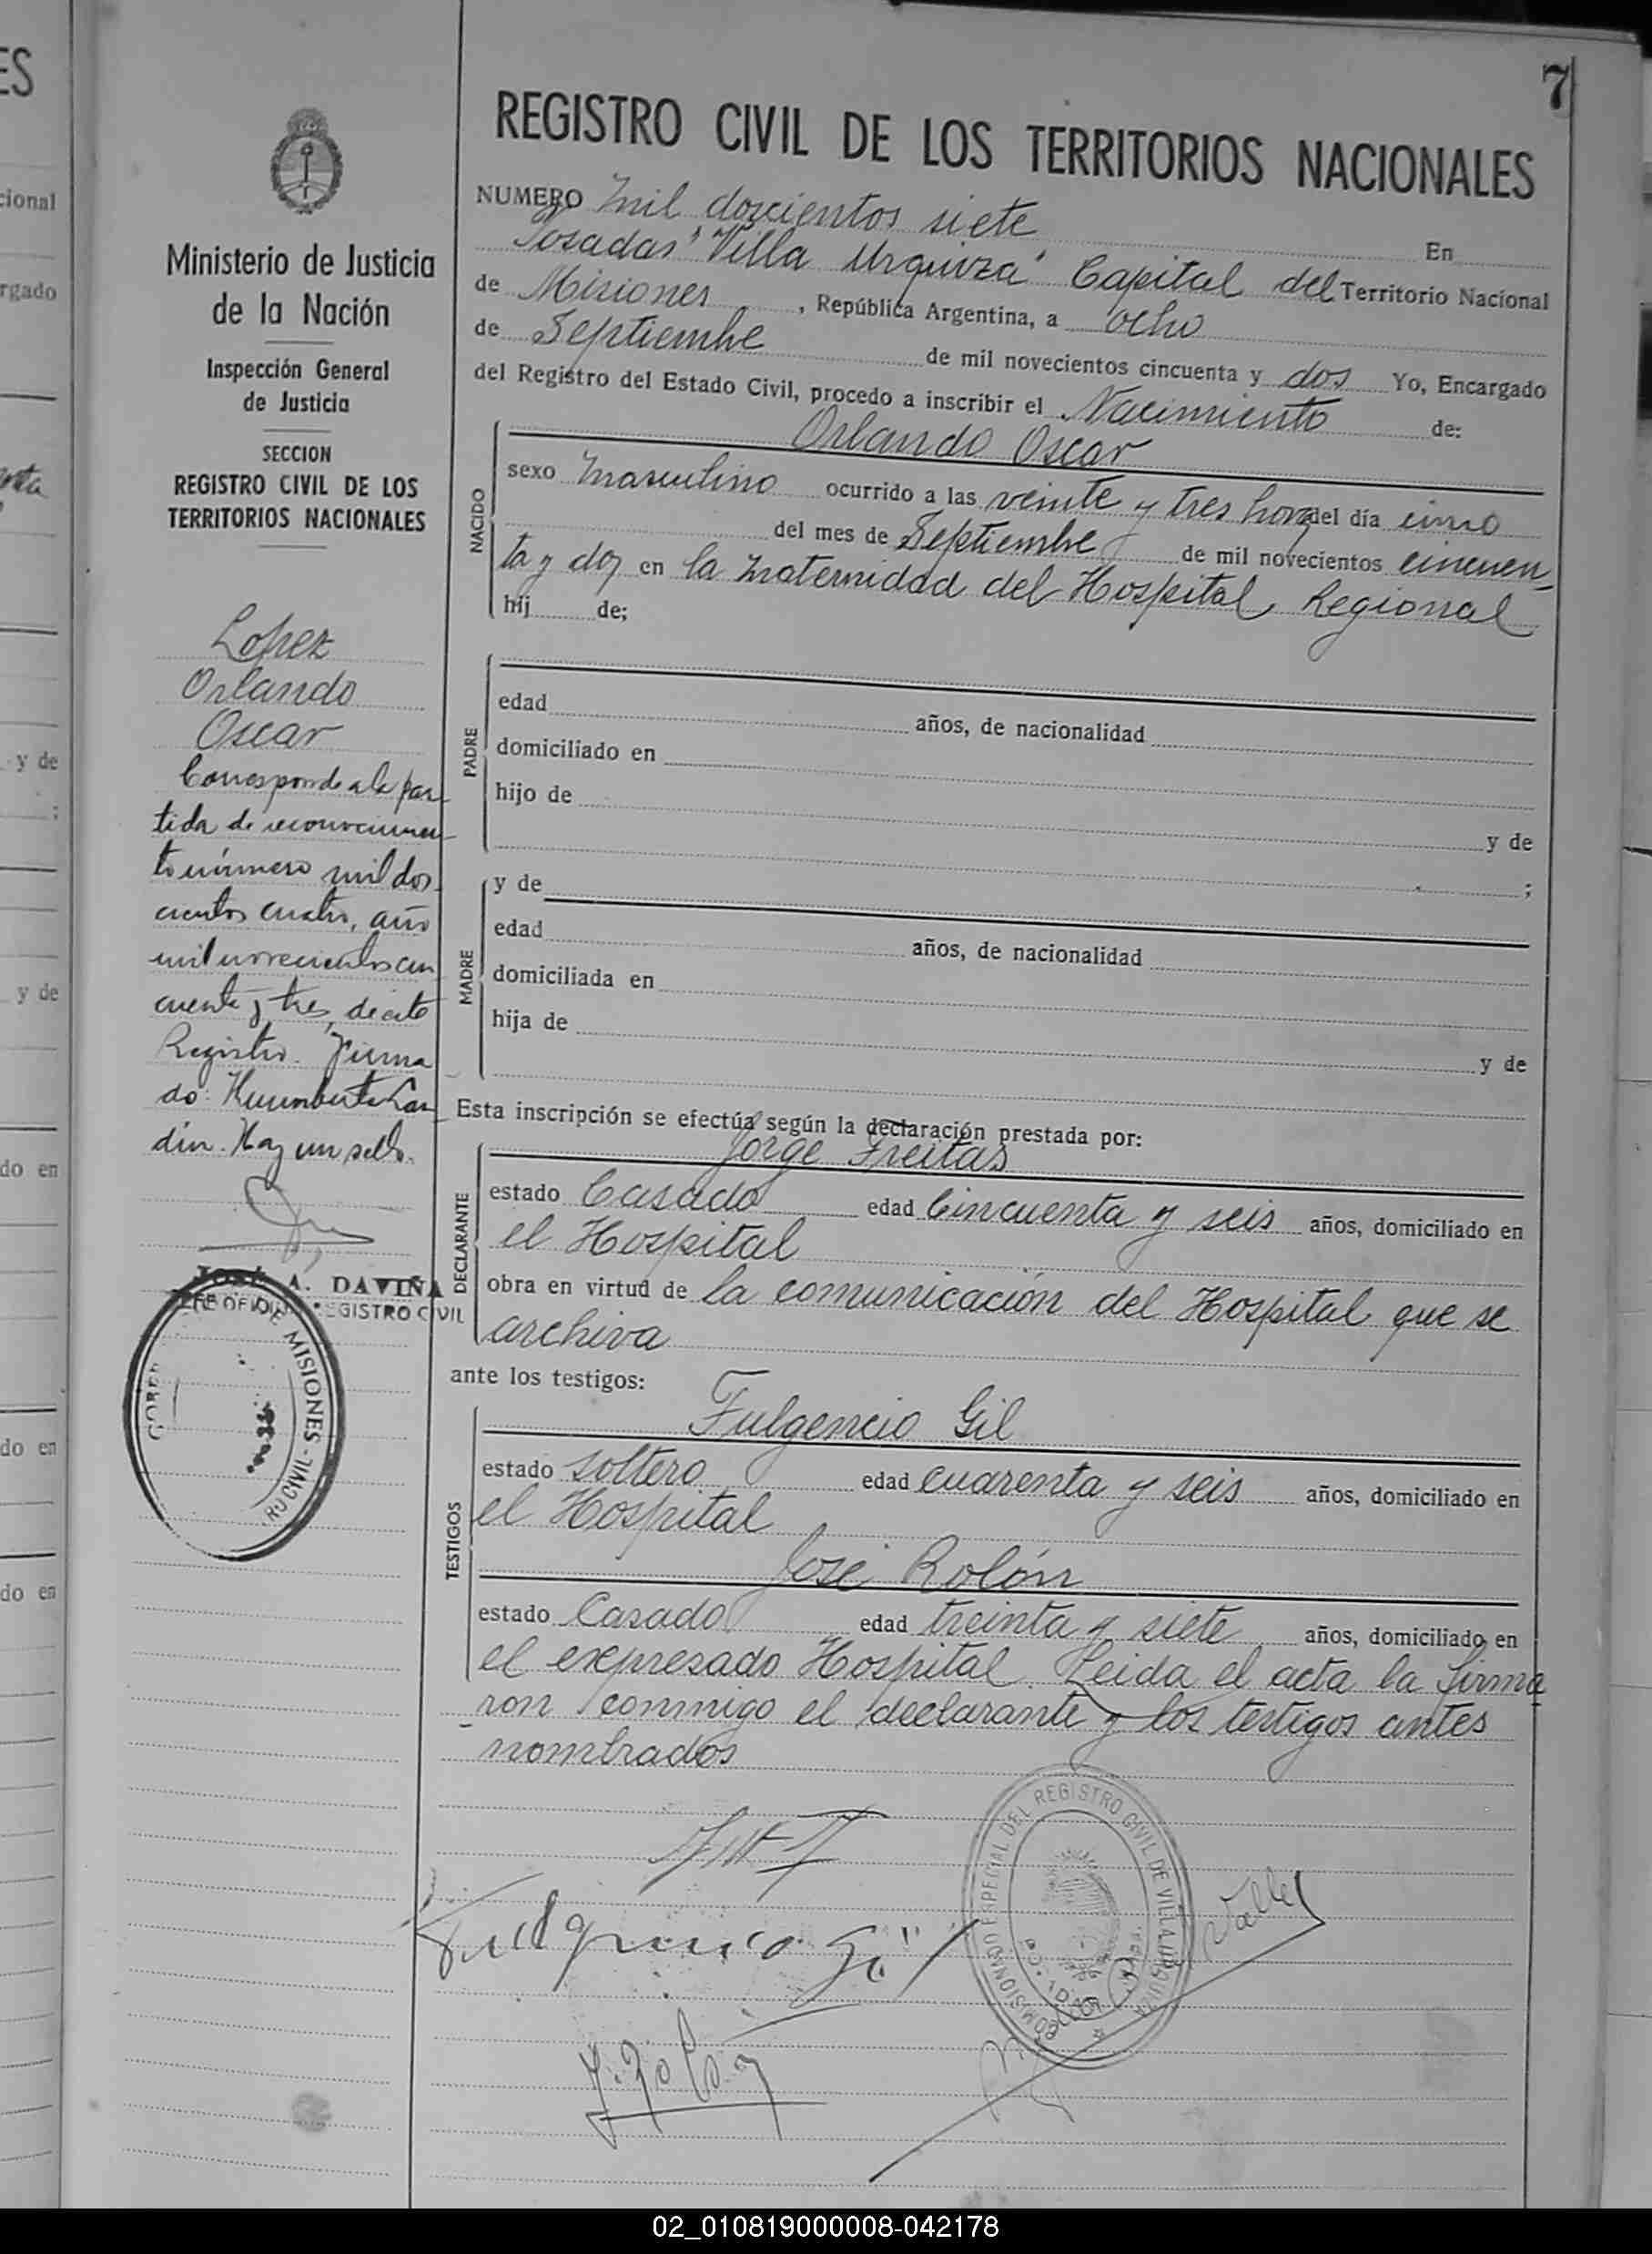 7
REGISTRO CIVIL DE LOS TERRITORIOS NACIONALES
Ministerio de Justicia
de la Nación
Inspección General
de Justicia
SECCION
REGISTRO CIVIL DE LOS
TERRITORIOS NACIONALES
Lopez
Orlando
Oscar
Corresponde a la par
tida de reconocimien
to número mil dos
cientos cuatro, año
mil novecientos cin
cuenta y tres, de este
Registro. Firma
do: Humberto Lan
din. Hay un sello.
JOSÉ A. DAVIÑA
JEFE OFICINA REGISTRO CIVIL
MISIONES - CIVIL
NUMERO mil doscientos siete En
Posadas "Villa Urquiza" Capital del Territorio Nacional
de Misiones, República Argentina, a ocho
de Septiembre de mil novecientos cincuenta y dos Yo, Encargado
del Registro del Estado Civil, procedo a inscribir el Nacimiento de:
NACIDO
Orlando Oscar
sexo masculino ocurrido a las veinte y tres horas del día cinco
del mes de Septiembre de mil novecientos cincuen
ta y dos en la maternidad del Hospital Regional
hij de;
PADRE
edad años, de nacionalidad
domiciliado en
hijo de
y de
;
MADRE
y de
edad años, de nacionalidad
domiciliada en
hija de
y de
Esta inscripción se efectúa según la declaración prestada por:
DECLARANTE
Jorge Freitas
estado Casado edad Cincuenta y seis años, domiciliado en
el Hospital
obra en virtud de la comunicación del Hospital que se
archiva
ante los testigos:
TESTIGOS
Fulgencio Gil
estado soltero edad cuarenta y seis años, domiciliado en
el Hospital
José Rolón
estado Casado edad treinta y siete años, domiciliado en
el expresado Hospital. Leida el acta la firma
ron conmigo el declarante y los testigos antes
nombrados
COMISIONADO ESPECIAL DEL REGISTRO CIVIL DE VILLA URQUIZA
Fulgencio Gil
J. Rolón
Valle
02_010819000008-042178